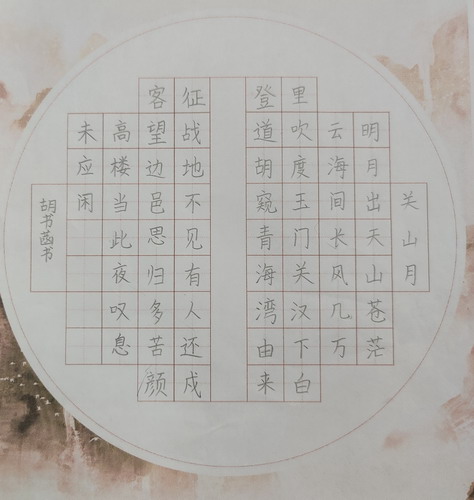 关山月
明月出天山苍茫
云海间长风几万
里吹度玉门关汉下白
登道胡窥青海湾由来
征战地不见有人还戍
客望边邑思归多苦颜
高楼当此夜叹息
未应闲
胡书菡书